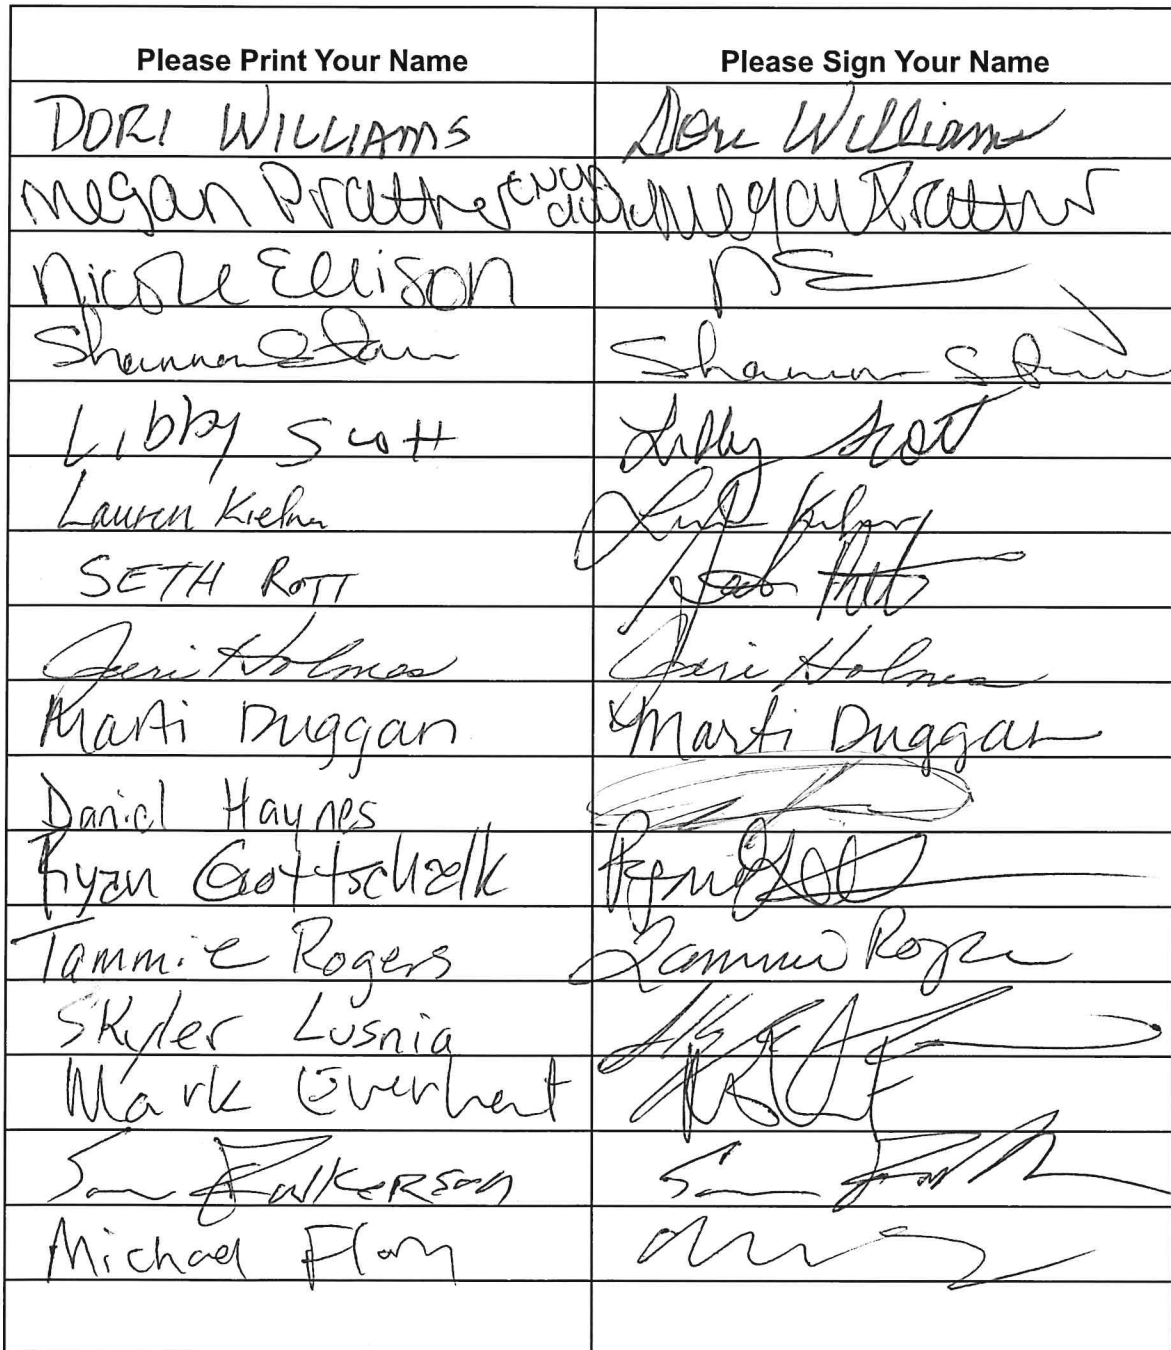 Please Print Your Name Please Sign Your Name
DORI WILLIAMS Dori Williams
Megan Prather Megan Prather
Nicole Ellison NE
Shannon Shannon
Libby Scott Libby Scott
Lauren
SETH ROTT
Jeri Holmes Jeri Holmes
Marti Duggan Marti Duggan
Daniel Haynes
Ryan Gottschalk
Tammie Rogers Tammie Rogers
Skyler Lusnia
Mark Everhart
Sam Fulkerson Sam
Michael